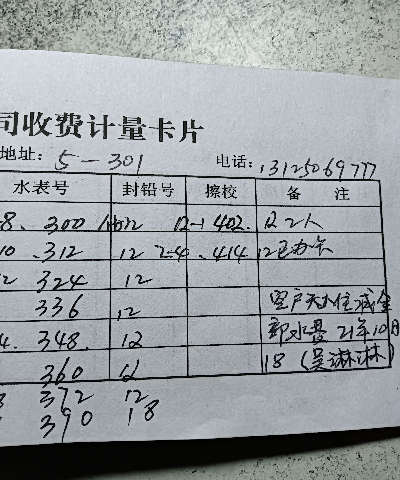 司收费计量卡片
地址: 5-301 电话: 13125069777
水表号 封铅号 擦校 备 注
8. 300 12 12-1 402. 2人
10 .312 12 2-4 .414 12已办卡
2 324 12
336 12 空户无人住减全
4. 348. 12 部水费 21年10月
360 12 18 (吴淋淋)
3 372 12
390 18